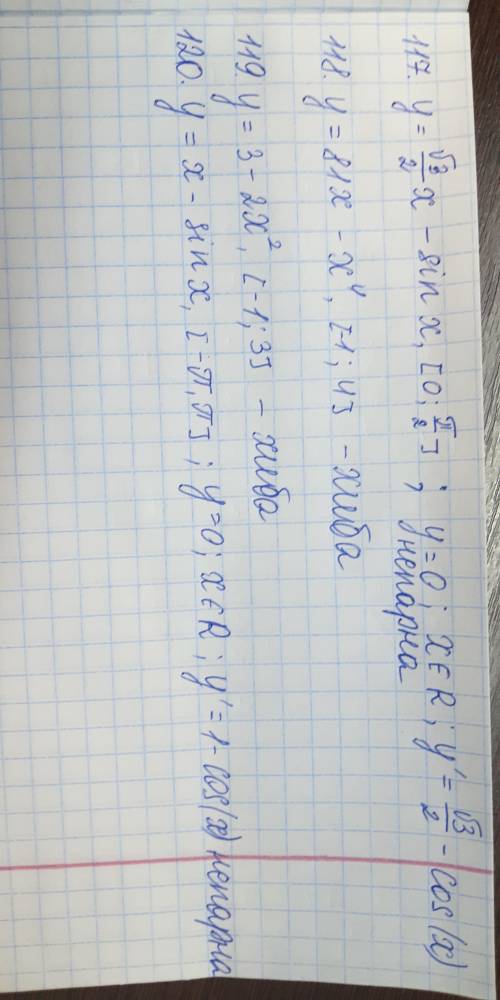 117. y = √3/2 x - sin x, [0; π/2] ; y=0; x ∈ R ; y' = √3/2 - cos(x)
непарна
118. y = 81x - x⁴, [-1; 4] - хиба
119. y = 3 - 2x², [-1; 3] - хиба
120. y = x - sin x, [-π, π] ; y=0; x ∈ R ; y' = 1 - cos(x) непарна